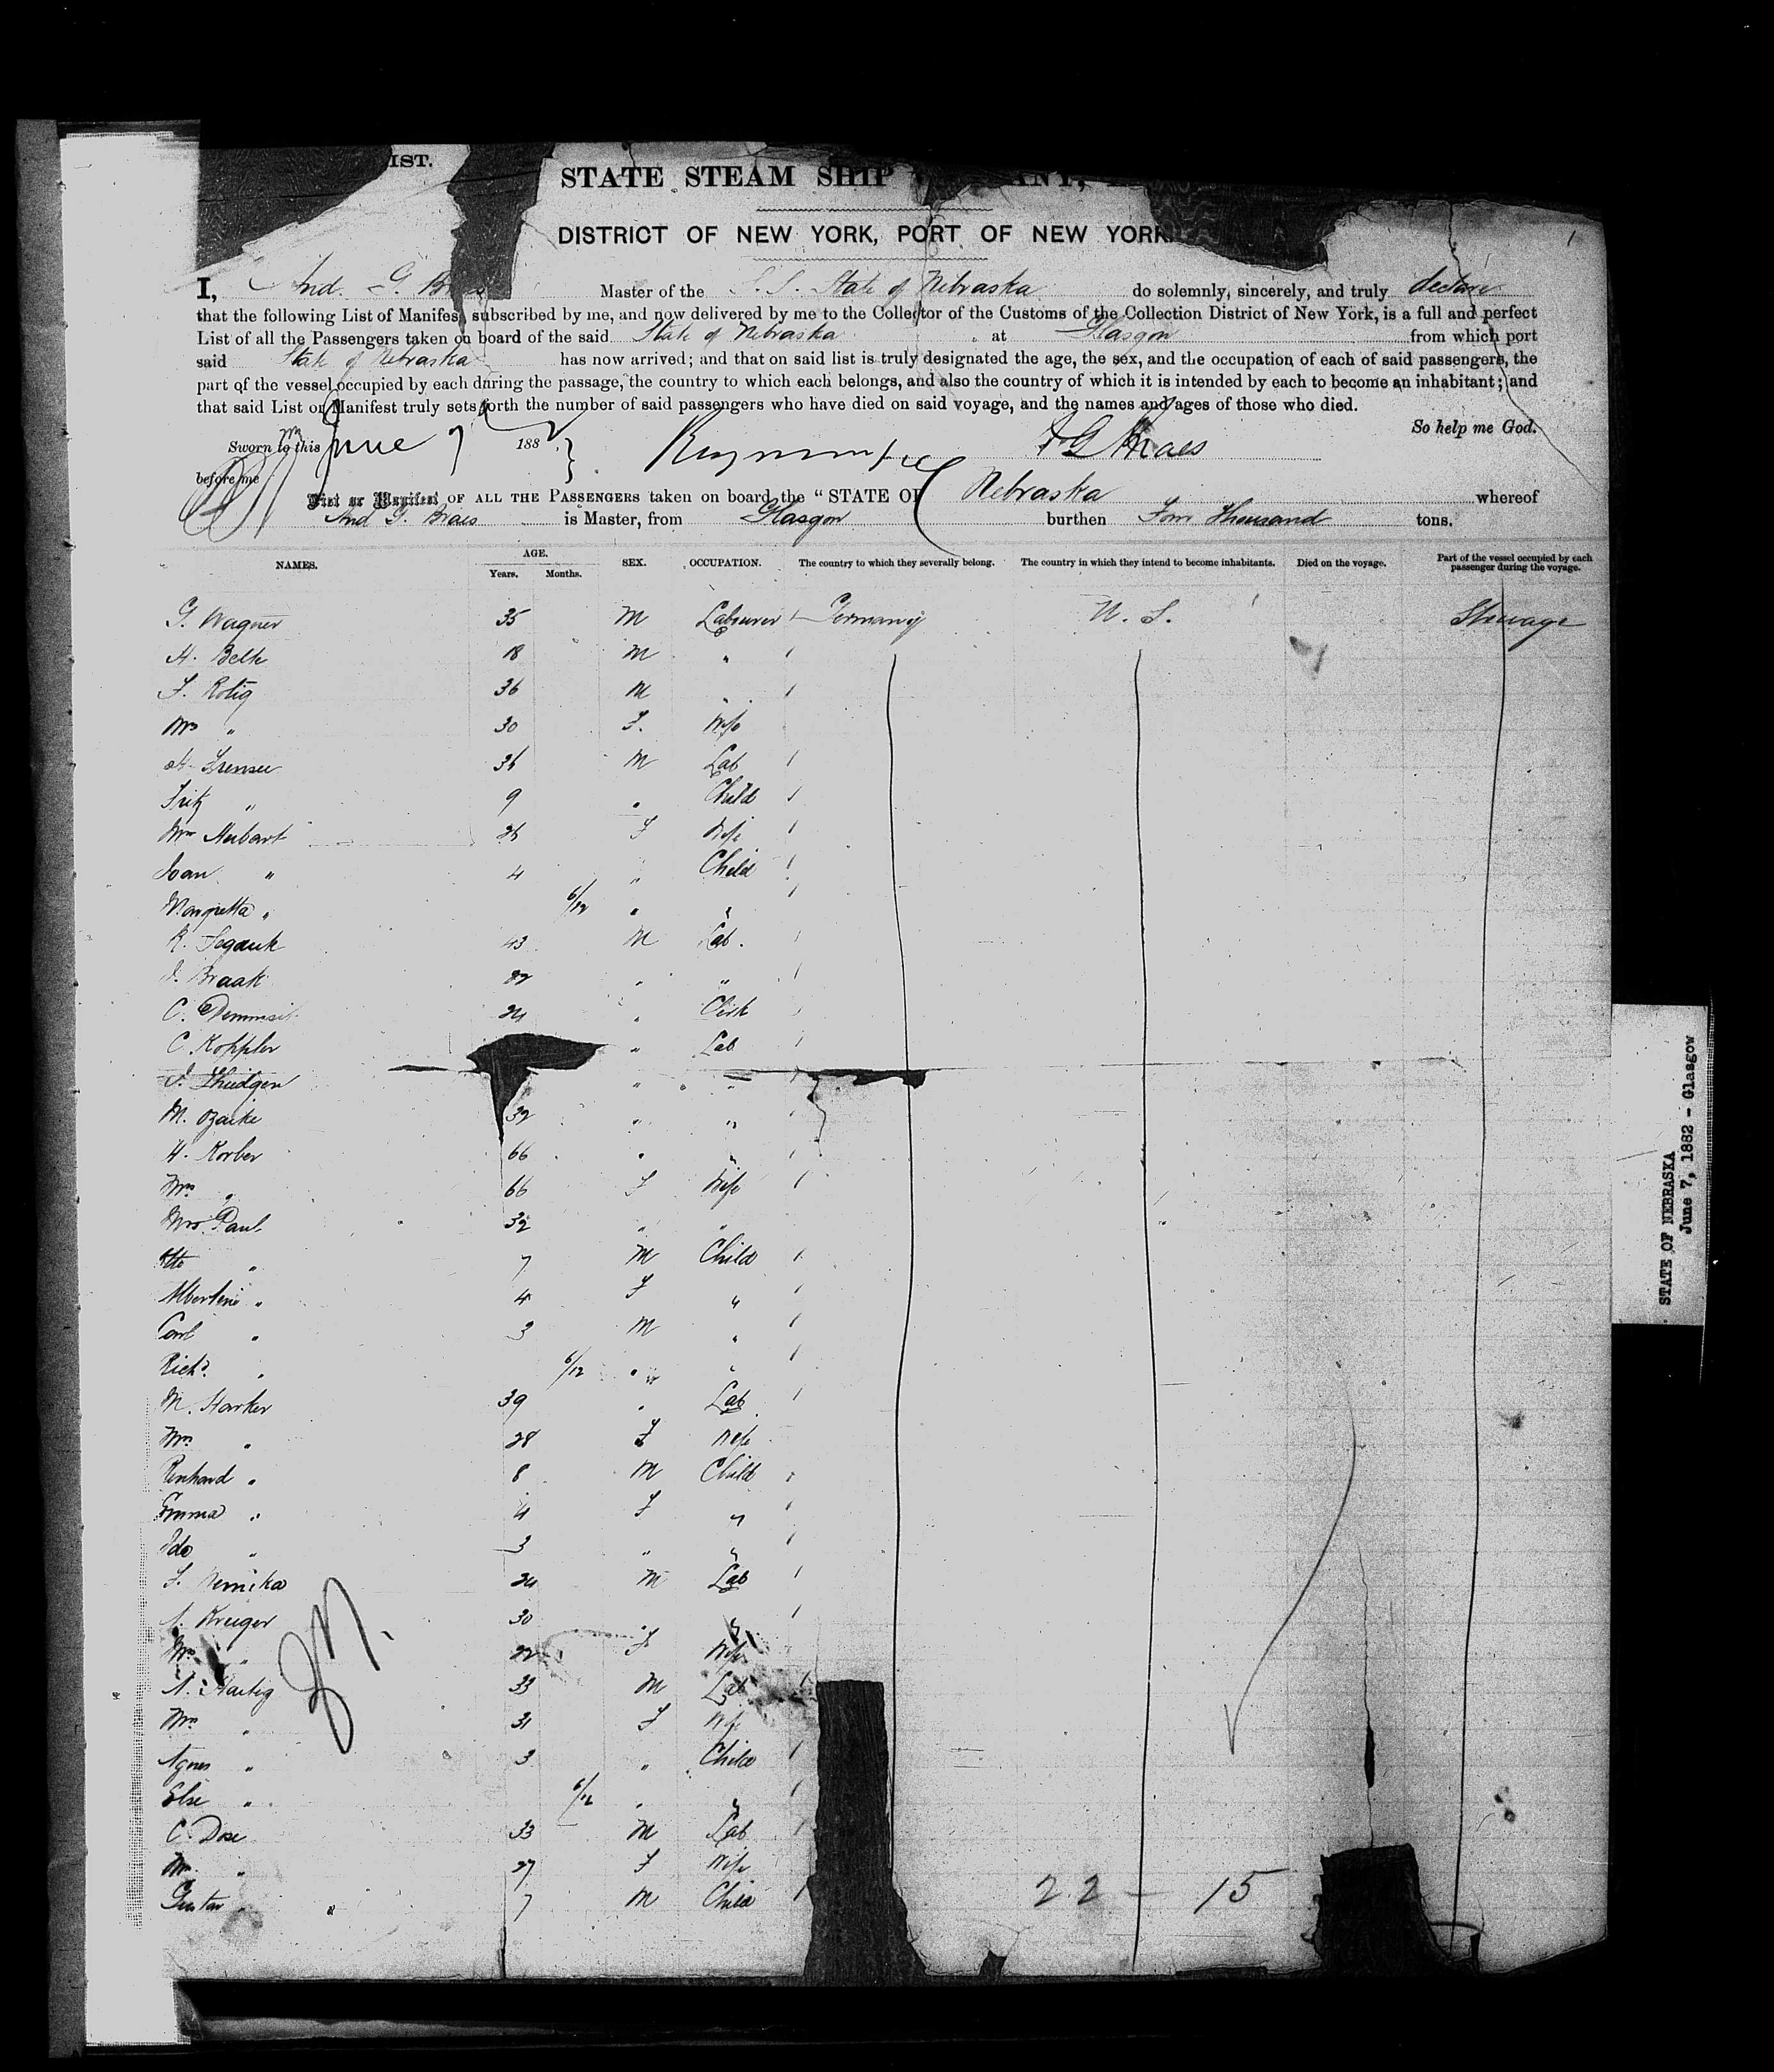 IST.
STATE STEAM SHIP
DISTRICT OF NEW YORK, PORT OF NEW YORK
I, And. G. Master of the S. S. State of Nebraska do solemnly, sincerely, and truly declare
that the following List of Manifest, subscribed by me, and now delivered by me to the Collector of the Customs of the Collection District of New York, is a full and perfect
List of all the Passengers taken on board of the said State of Nebraska at Glasgow from which port
said State of Nebraska has now arrived; and that on said list is truly designated the age, the sex, and the occupation of each of said passengers, the
part of the vessel occupied by each during the passage, the country to which each belongs, and also the country of which it is intended by each to become an inhabitant; and
that said List or Manifest truly sets forth the number of said passengers who have died on said voyage, and the names and ages of those who died.
So help me God.
Sworn to this June 7 1882
before me
List or Manifest OF ALL THE PASSENGERS taken on board the "STATE OF Nebraska whereof
And G. Braes is Master, from Glasgow burthen Four Thousand tons.
NAMES. AGE. Years. Months. SEX. OCCUPATION. The country to which they severally belong. The country in which they intend to become inhabitants. Died on the voyage. Part of the vessel occupied by each passenger during the voyage.
G. Wagner 35 M Labourer Germany U. S. Steerage
H. Belk 18 M "
F. Rotig 36 M "
Mrs " 30 F. Wife
36 M Lab
Fritz " 9 " Child
Mrs 26 F Wife
Joan " 4 " Child
Margretta " 6/12 " "
43 M Lab.
Braak " "
C. 24 " Clerk
C. Koppler " Lab
" "
M. 32 " "
H. Korber 66 " "
Mrs " 66 F Wife
Mrs Paul 32 " "
Otto " 7 M Child
Albertine " 4 F "
Carl " 3 M "
Richd. " 6/12 " "
M. Harker 39 " Lab
Mrs " 28 F Wife
" 8 M Child
Emma " 4 F "
Ida " 3 " "
24 M Lab
Kreuger 30 "
Mrs " 22 F Wife
A. Hartig 33 M Lab
Mrs " 31 F Wife
Agnes " 3 " Child
Else " 6/12 " "
C. Dose 33 M Lab
Mrs " 27 F Wife
Gustav " 7 M Child
22 - 15
STATE OF NEBRASKA
June 7, 1882 - Glasgow